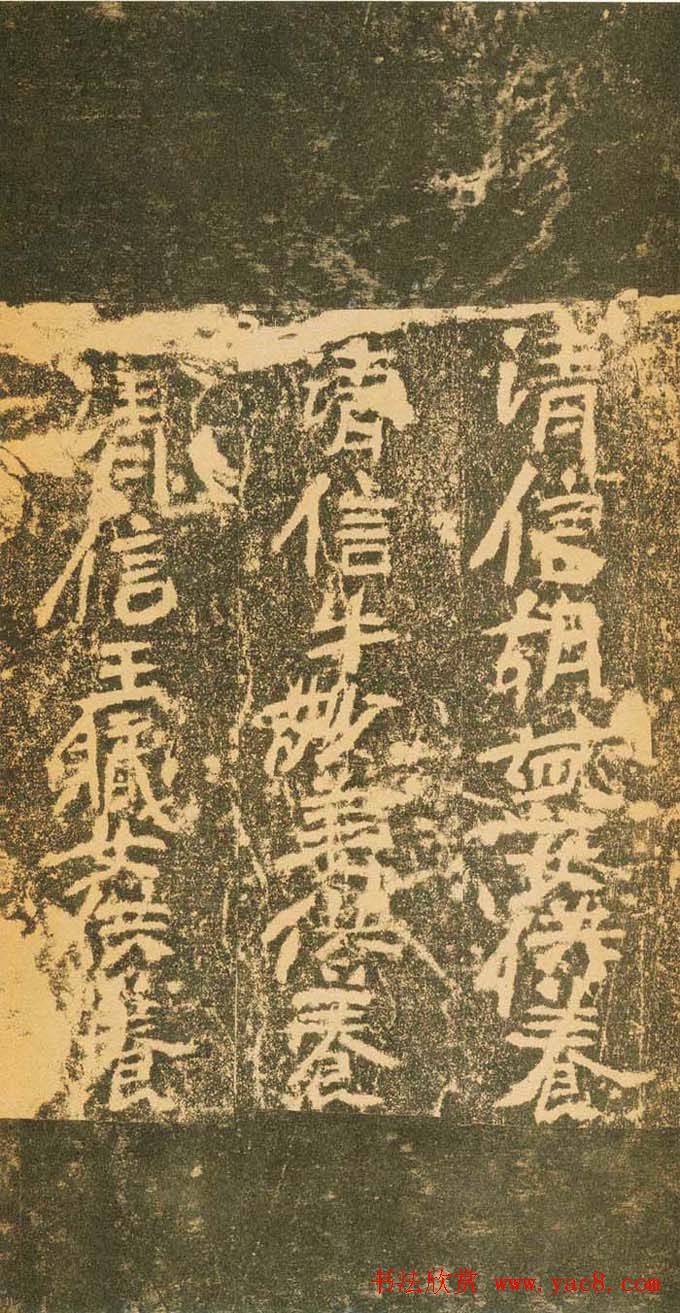 清信胡女供養
清信牛妙供養
清信王女供養
书法欣赏 www.yac8.com